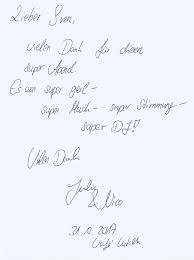 Lieber Sven,
vielen Dank für diesen
super Abend.
Es war super geil –
super Musik – super Stimmung –
super DJ!!
Vielen Dank
Julia
& Nico
31.12.2017
Café